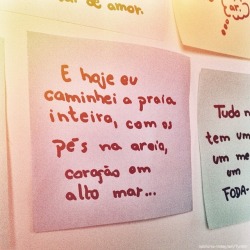 de amor.
ar.
E hoje eu
caminhei a praia
inteira, com os
pés na areia,
coração em
alto mar...
Tudo n
tem um
um me
um
FODA-